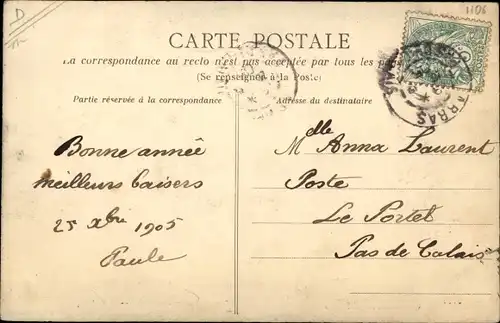 D
1106
CARTE POSTALE
La correspondance au recto n'est pas acceptée par tous les pays
(Se renseigner à la Poste)
Partie réservée à la correspondance
Adresse du destinataire
ARRAS
Bonne année
meilleurs baisers
25 Xbre 1905
Paule
Mdlle Anna Laurent
Poste
Le Portel
Pas de Calais